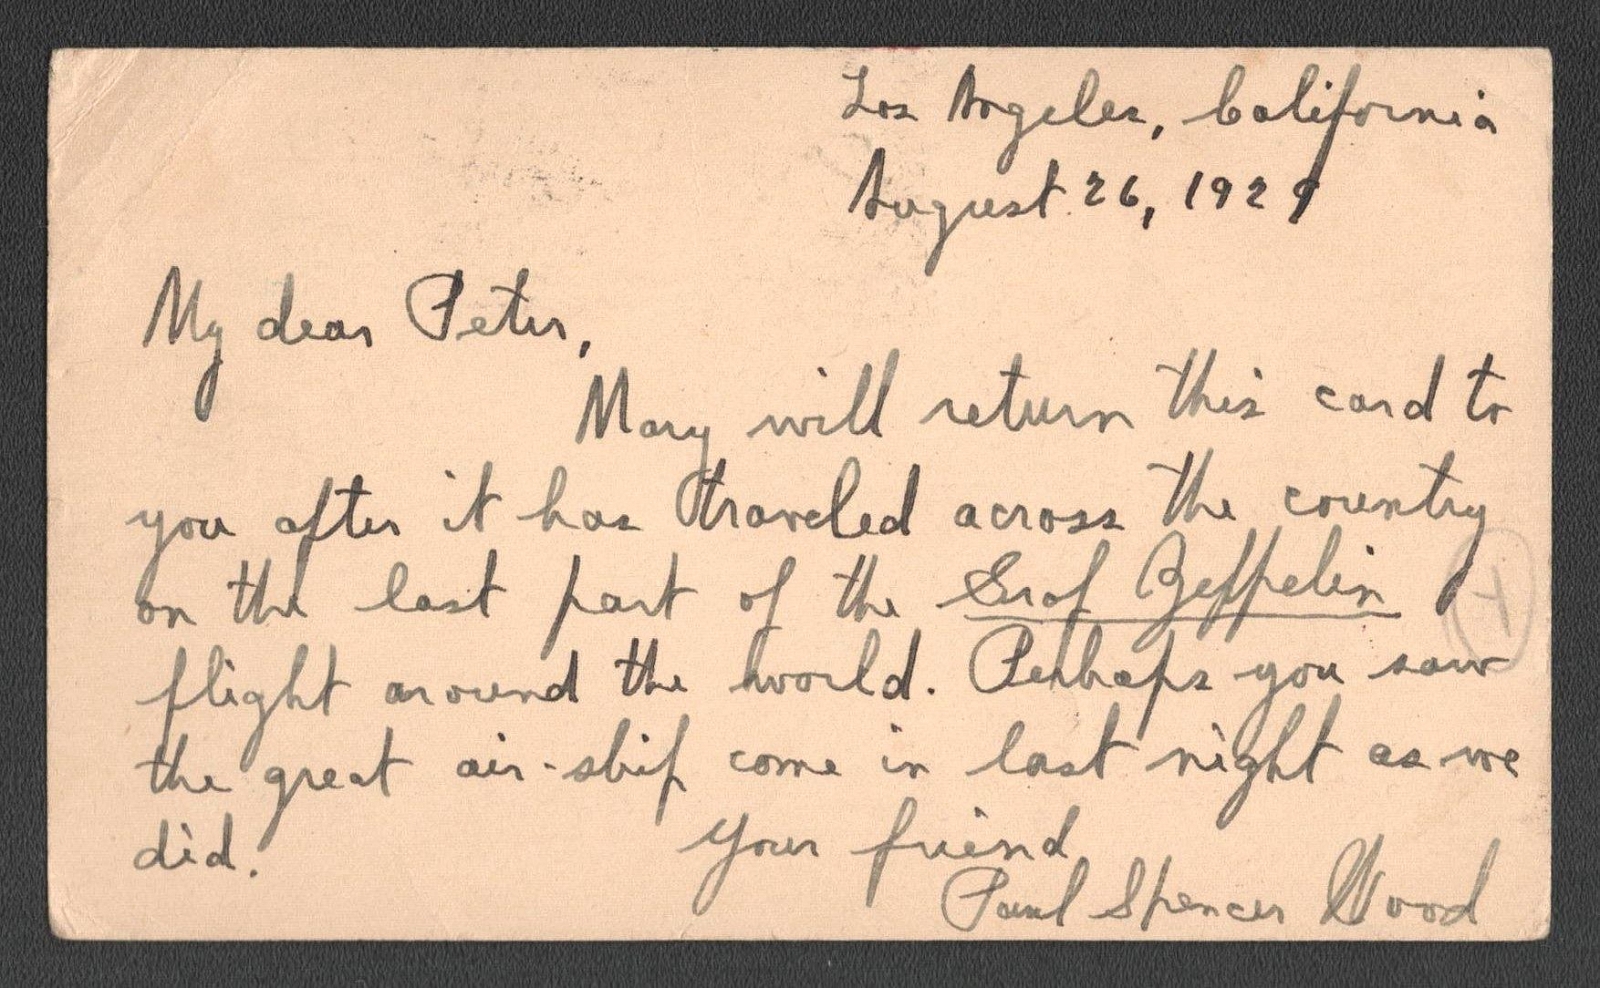 Los Angeles, California
August 26, 1929
My dear Peter,
Mary will return this card to
you after it has traveled across the country
on the last part of the Graf Zeppelin
flight around the world. Perhaps you saw
the great air-ship come in last night as we
did.
Your friend
Paul Spencer Wood